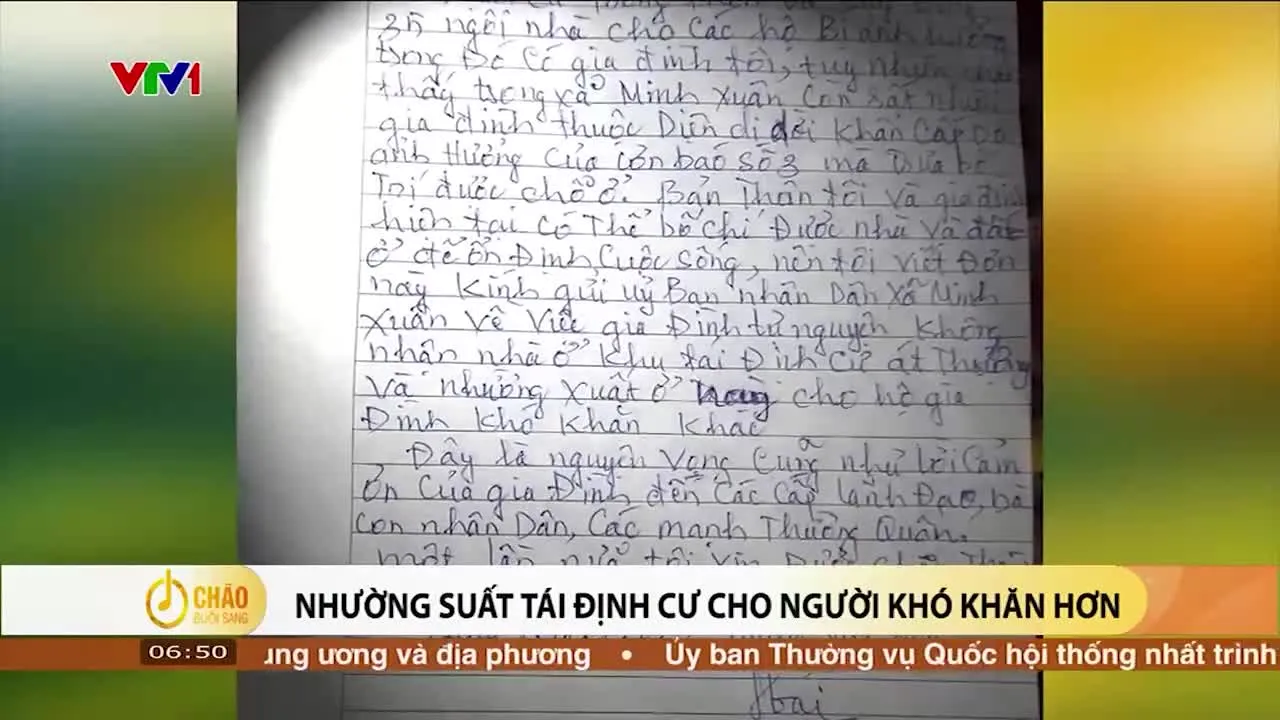 VTV1
35 ngôi nhà cho các hộ Bị ảnh hưởng
trong Đó Có gia đình tôi, tuy nhiên
thấy trong xã Minh Xuân Còn rất nhiều
gia đình thuộc Diện di dời Khẩn Cấp Do
ảnh Hưởng Của Cơn bão số 3 mà
Trí được chổ ở. Bản Thân tôi và gia đình
hiện tại có Thể bố chí Được nhà và đất
ở để ổn Định Cuộc sống, nên tôi viết Đơn
này Kính gửi uỷ Ban nhân Dân Xã Minh
Xuân Về Việc gia Đình tự nguyện Không
nhận nhà ở Khu tái Định Cư át Thượng
Và nhường Xuất ở cho hộ gia
Đình Khó Khăn Khác
Đây là nguyện Vọng Cũng như lời Cảm
ơn Của gia Đình đến Các Cấp lãnh Đạo, bà
Con nhân Dân, Các mạnh Thường Quân.
một lần nữa tôi Xin
CHÀO
BUỔI SÁNG
NHƯỜNG SUẤT TÁI ĐỊNH CƯ CHO NGƯỜI KHÓ KHĂN HƠN
06:50
ung ương và địa phương • Ủy ban Thường vụ Quốc hội thống nhất trình